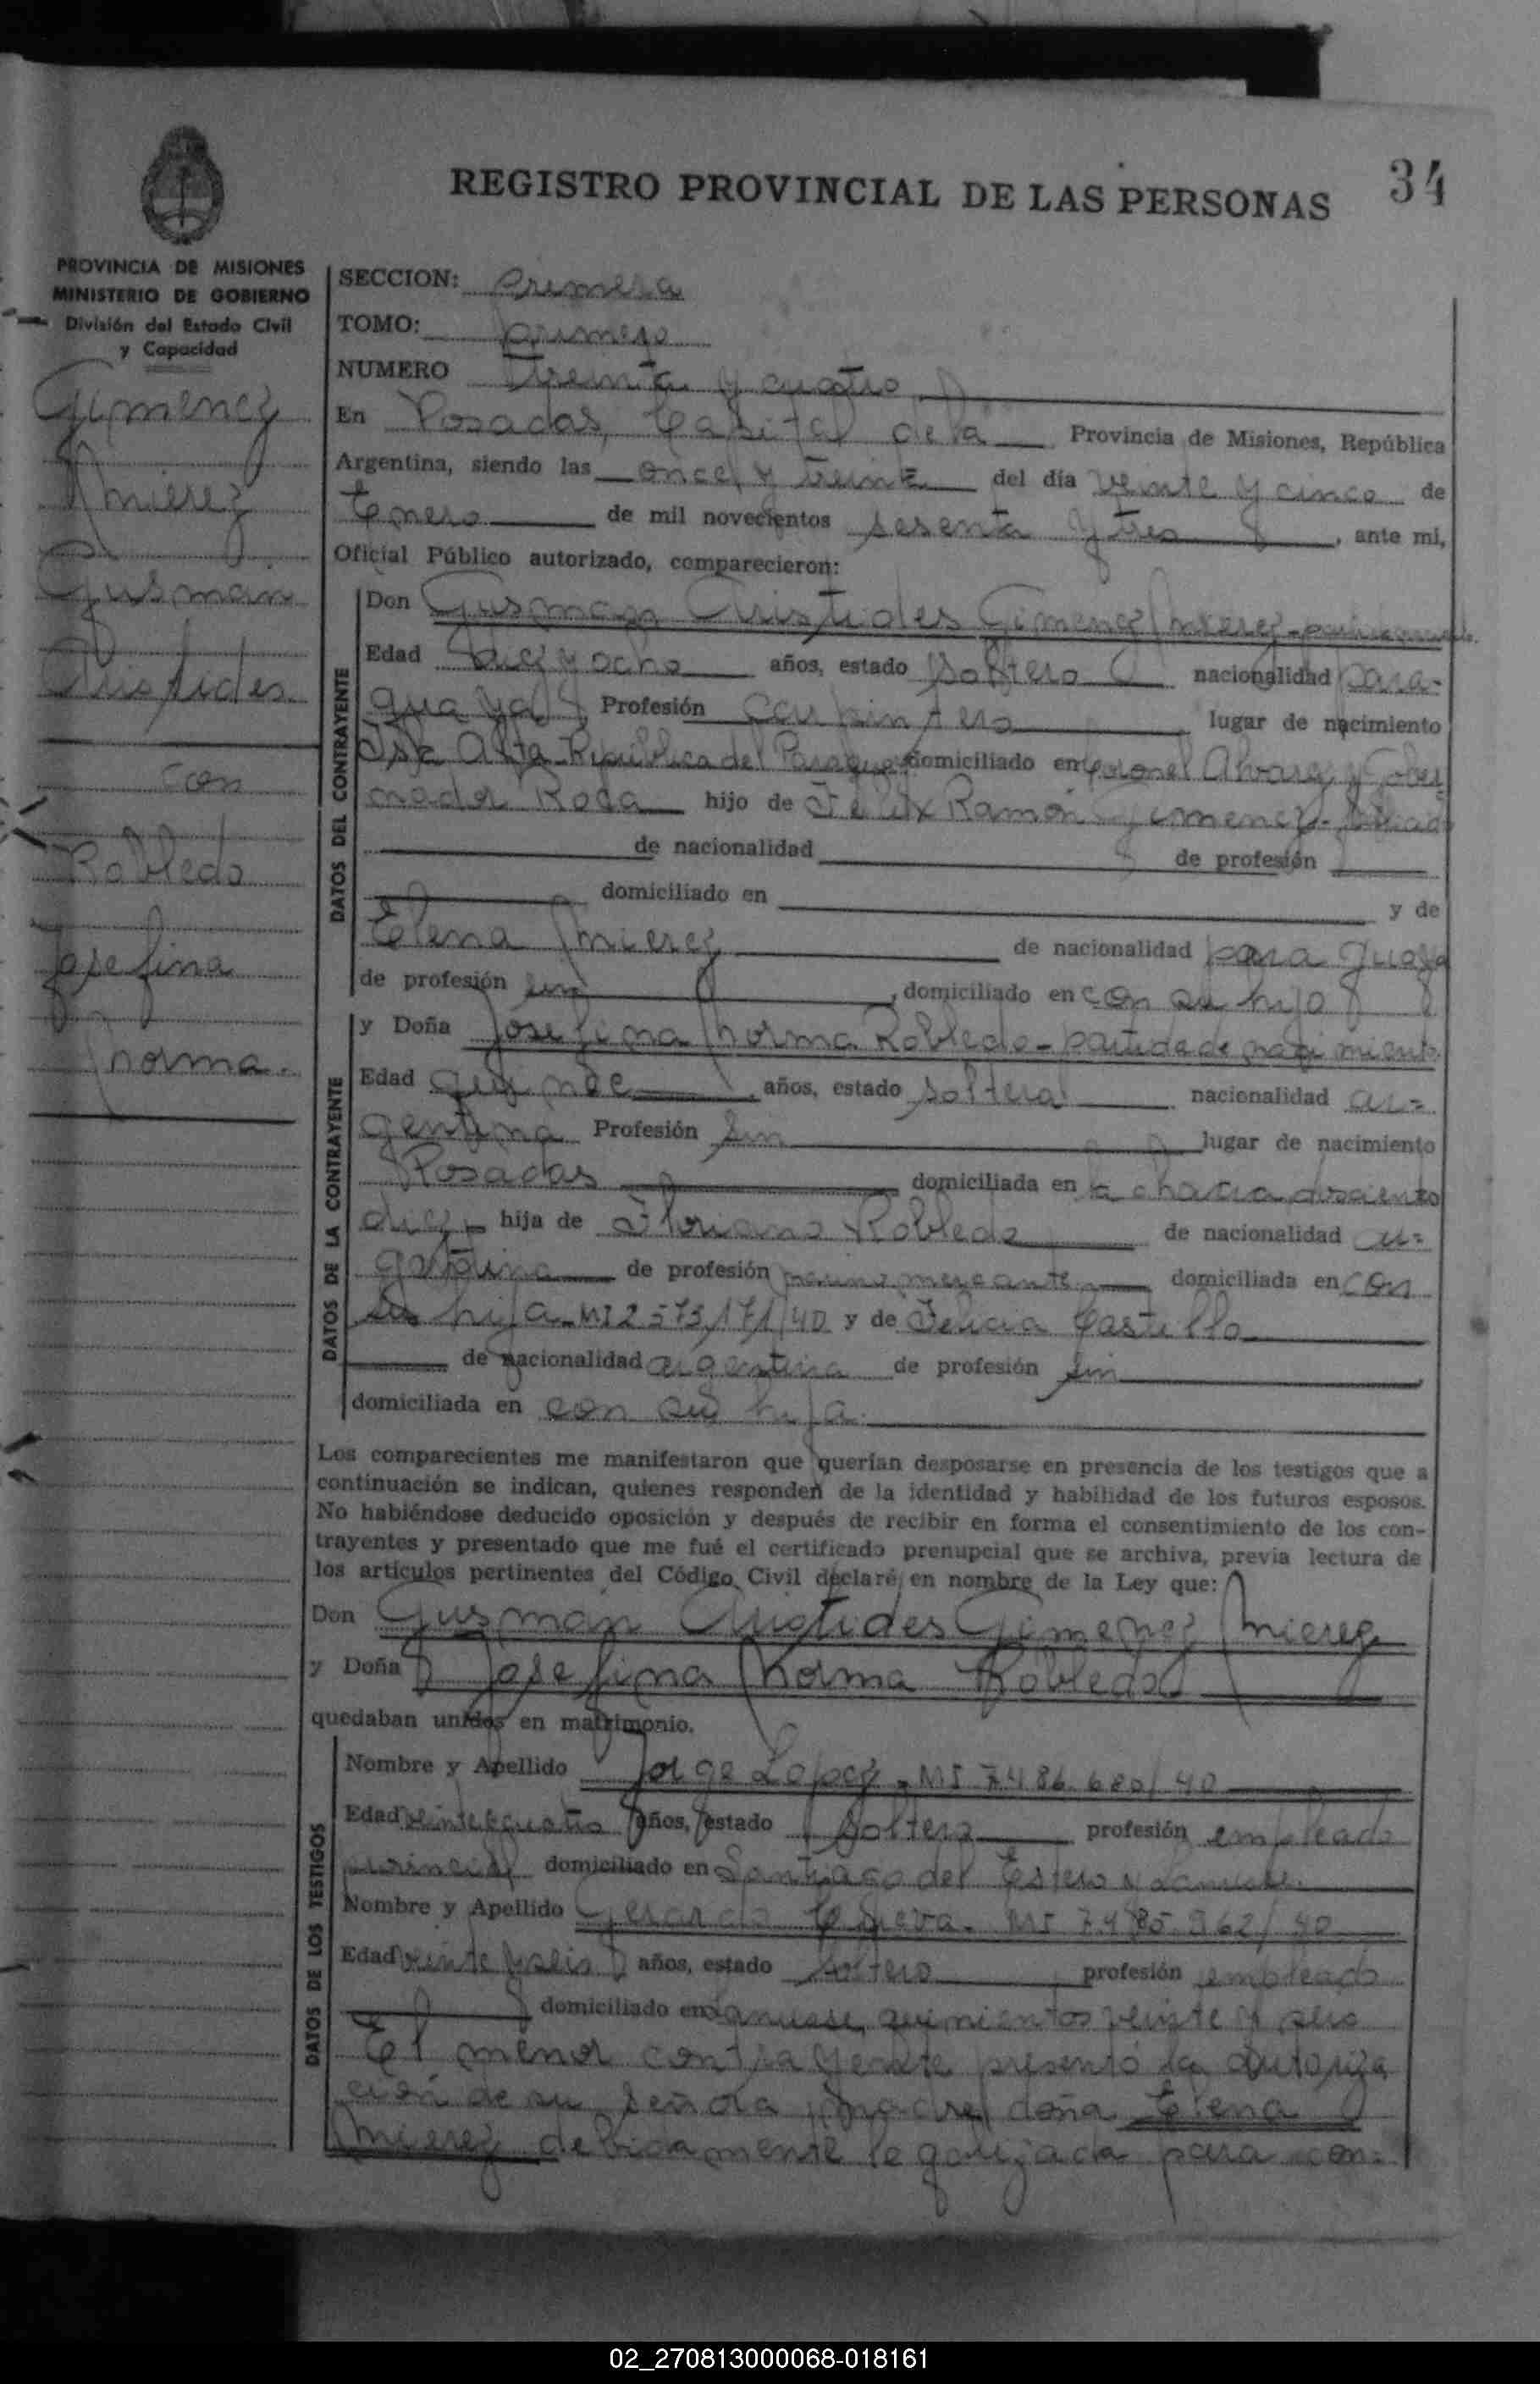 REGISTRO PROVINCIAL DE LAS PERSONAS 34
PROVINCIA DE MISIONES
MINISTERIO DE GOBIERNO
División del Estado Civil
y Capacidad
Gimenez
Mierez
Gusmán
Aristides
con
Robledo
Josefina
Norma.
SECCION: Primera
TOMO: primero
NUMERO Treinta y cuatro
En Posadas, Capital de la Provincia de Misiones, República
Argentina, siendo las once y treinta del día veinte y cinco de
Enero de mil novecientos sesenta y tres, ante mi,
Oficial Público autorizado, comparecieron:
DATOS DEL CONTRAYENTE
Don Gusman Aristides Gimenez Mierez
Edad diez y ocho años, estado Soltero nacionalidad para-
guaya Profesión Carpintero lugar de nacimiento
Isla Alta República del Paraguay domiciliado en Coronel Alvarez y Gober
nador Roca hijo de Felix Ramón Gimenez
de nacionalidad de profesión
domiciliado en y de
Elena Mierez de nacionalidad paraguaya
de profesión sin, domiciliado en con su hijo
DATOS DE LA CONTRAYENTE
y Doña Josefina Norma Robledo - partida de nacimiento
Edad quince, años, estado soltera nacionalidad ar-
gentina Profesión Sin lugar de nacimiento
Posadas domiciliada en la chacra doscientos
diez hija de Floriano Robledo de nacionalidad ar-
gentina de profesión marino mercante domiciliada en con
su hija - MI 2573171/40 y de Felicia Castillo
de nacionalidad argentina de profesión sin
domiciliada en con su hija.
Los comparecientes me manifestaron que querían desposarse en presencia de los testigos que a
continuación se indican, quienes responden de la identidad y habilidad de los futuros esposos.
No habiéndose deducido oposición y después de recibir en forma el consentimiento de los con-
trayentes y presentado que me fué el certificado prenupcial que se archiva, previa lectura de
los artículos pertinentes del Código Civil declaré, en nombre de la Ley que:
Don Gusmán Aristides Gimenez Mierez
y Doña Josefina Norma Robledo
quedaban unidos en matrimonio.
DATOS DE LOS TESTIGOS
Nombre y Apellido Jorge Lopez - MI 7.486.680/40
Edad veinte y cuatro años, estado Soltero profesión empleado
provincial domiciliado en Santiago del Estero y Lanusse.
Nombre y Apellido Gerardo MI 7.485.962/40
Edad veinte y seis años, estado soltero profesión empleado
domiciliado en Lanusse quinientos veinte y seis
El menor contrayente presentó la autoriza
ción de su señora madre doña Elena
Mierez debidamente legalizada para con-
02_270813000068-018161